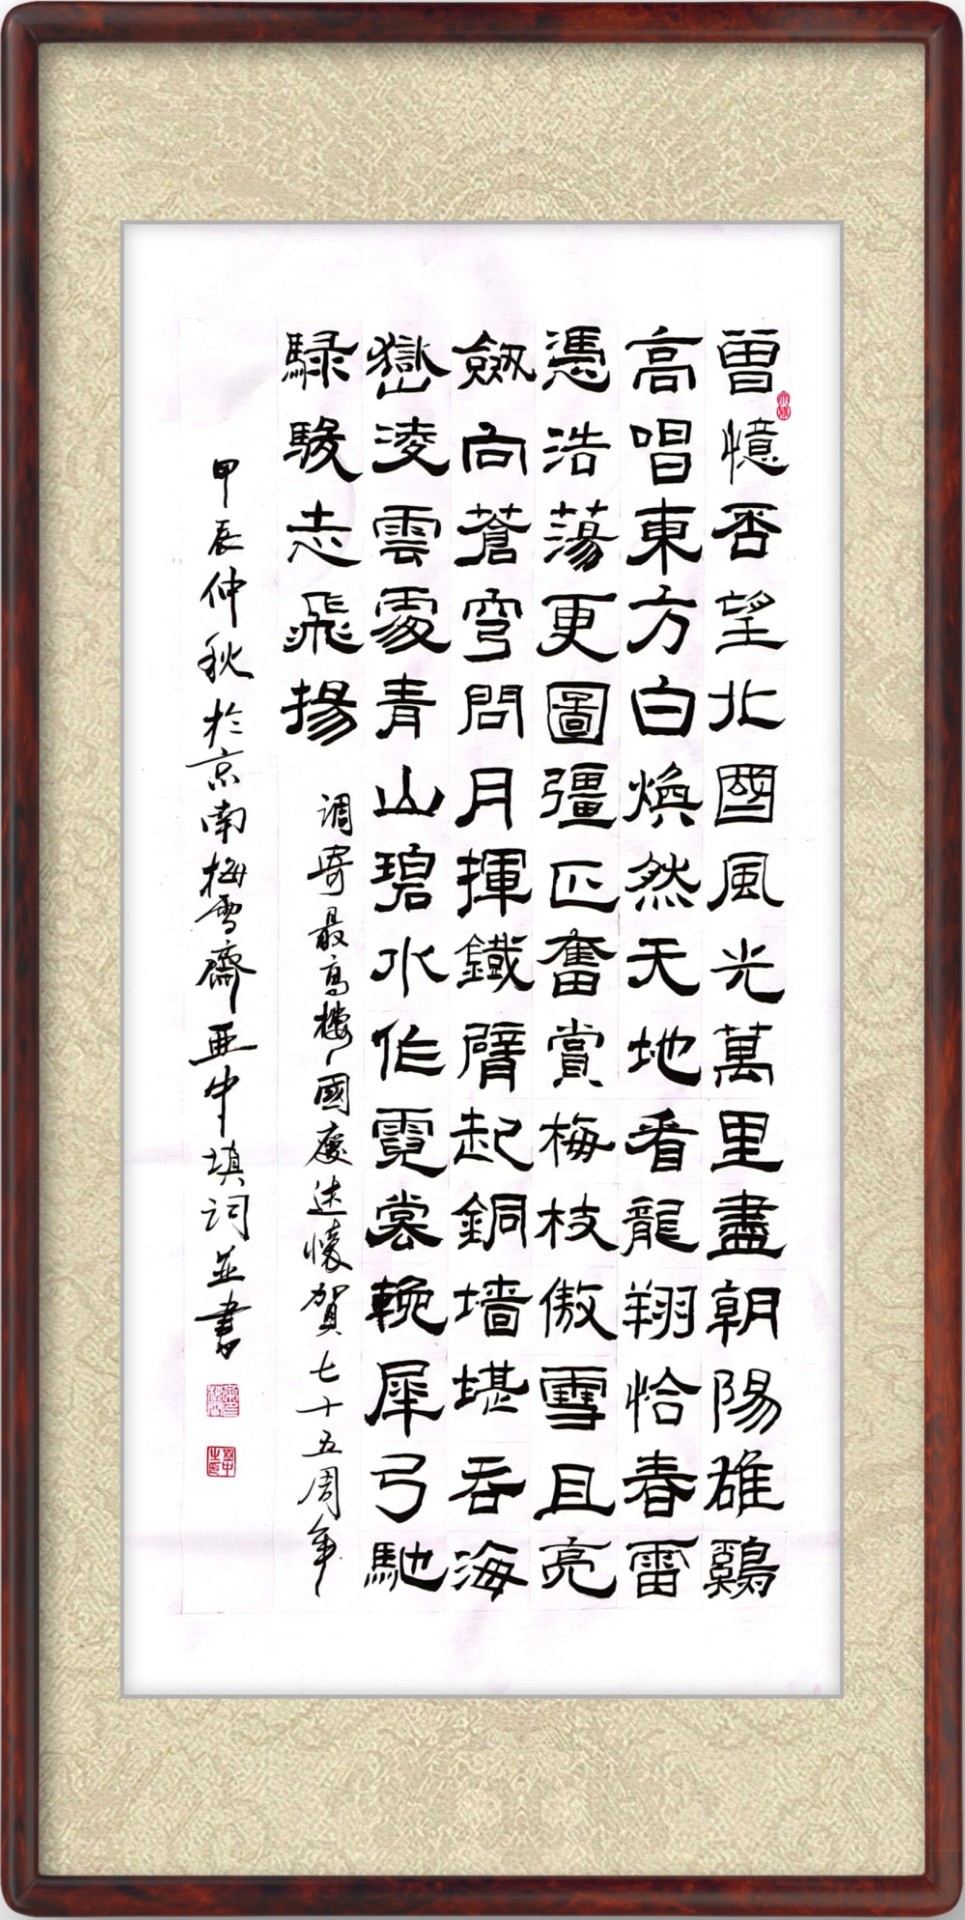 曾憶否望北國風光萬里盡朝陽雄鷄
高唱東方白煥然天地看龍翔恰春雷
憑浩蕩更圖彊匹奮賞梅枝傲雪且亮
劔向蒼穹問月揮鐵臂起銅墙堪吞海
嶽凌雲處青山碧水作霓裳輓犀弓馳
騄駿志飛揚
调寄最高樓國慶述懷賀七十五周年
甲辰仲秋於京南梅雪齋亚中填词並書